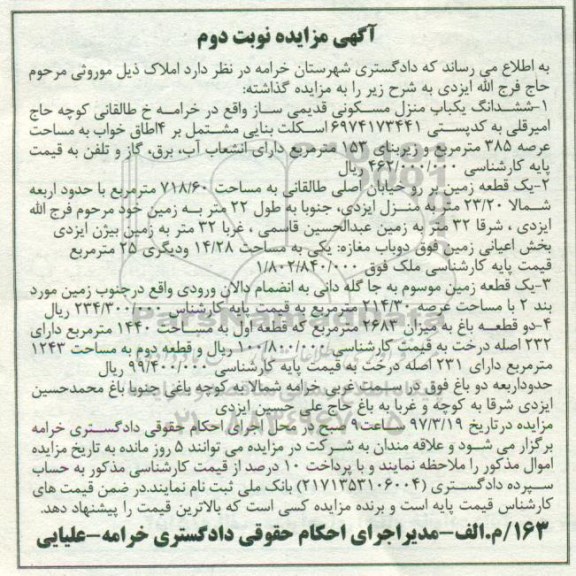 آگهی مزایده نوبت دوم
به اطلاع می رساند که دادگستری شهرستان خرامه در نظر دارد املاک ذیل موروثی مرحوم
حاج فرج الله ایزدی به شرح زیر را به مزایده گذاشته:
۱-ششدانگ یکباب منزل مسکونی قدیمی ساز واقع در خرامه خ طالقانی کوچه حاج
امیرقلی به کدپستی ۶۹۷۴۱۷۳۴۴۱ اسکلت بنایی مشتمل بر ۴اطاق خواب به مساحت
عرصه ۳۸۵ مترمربع و زیربنای ۱۵۳ مترمربع دارای انشعاب آب، برق، گاز و تلفن به قیمت
پایه کارشناسی ۴۶۲/۰۰۰/۰۰۰ ریال
۲-یک قطعه زمین بر رو خیابان اصلی طالقانی به مساحت ۷۱۸/۶۰ مترمربع با حدود اربعه
شمالا ۲۳/۲۰ متر به منزل ایزدی، جنوبا به طول ۲۲ متر به زمین خود مرحوم فرج الله
ایزدی ، شرقا ۳۲ متر به زمین عبدالحسین قاسمی ، غربا ۳۲ متر به زمین بیژن ایزدی
بخش اعیانی زمین فوق دوباب مغازه: یکی به مساحت ۱۴/۲۸ ودیگری ۲۵ مترمربع
قیمت پایه کارشناسی ملک فوق ۱/۸۰۲/۸۴۰/۰۰۰
۳-یک قطعه زمین موسوم به جا گله دانی به انضمام دالان ورودی واقع درجنوب زمین مورد
بند ۲ با مساحت عرصه ۲۱۴/۳۰ مترمربع به قیمت پایه کارشناس ۲۳۴/۳۰۰/۰۰۰ ریال
۴-دو قطعه باغ به میزان ۲۶۸۳ مترمربع که قطعه اول به مساحت ۱۴۴۰ مترمربع دارای
۲۳۲ اصله درخت به قیمت کارشناسی ۱۰۰/۸۰۰/۰۰۰ ریال و قطعه دوم به مساحت ۱۲۴۳
مترمربع دارای ۲۳۱ اصله درخت به قیمت پایه کارشناسی ۹۹/۴۰۰/۰۰۰ ریال
حدوداربعه دو باغ فوق در سمت غربی خرامه شمالا به کوچه باغی جنوبا باغ محمدحسین
ایزدی شرقا به کوچه و غربا به باغ حاج علی حسین ایزدی
مزایده درتاریخ ۹۷/۳/۱۹ ساعت۹ صبح در محل اجرای احکام حقوقی دادگستری خرامه
برگزار می شود و علاقه مندان به شرکت در مزایده می توانند ۵ روز مانده به تاریخ مزایده
اموال مذکور را ملاحظه نمایند و با پرداخت ۱۰ درصد از قیمت کارشناسی مذکور به حساب
سپرده دادگستری (۲۱۷۱۳۵۳۱۰۶۰۰۴) بانک ملی ثبت نام نمایند.در ضمن قیمت های
کارشناس قیمت پایه است و برنده مزایده کسی است که بالاترین قیمت را پیشنهاد دهد.
۱۶۳/م.الف-مدیراجرای احکام حقوقی دادگستری خرامه-علیایی